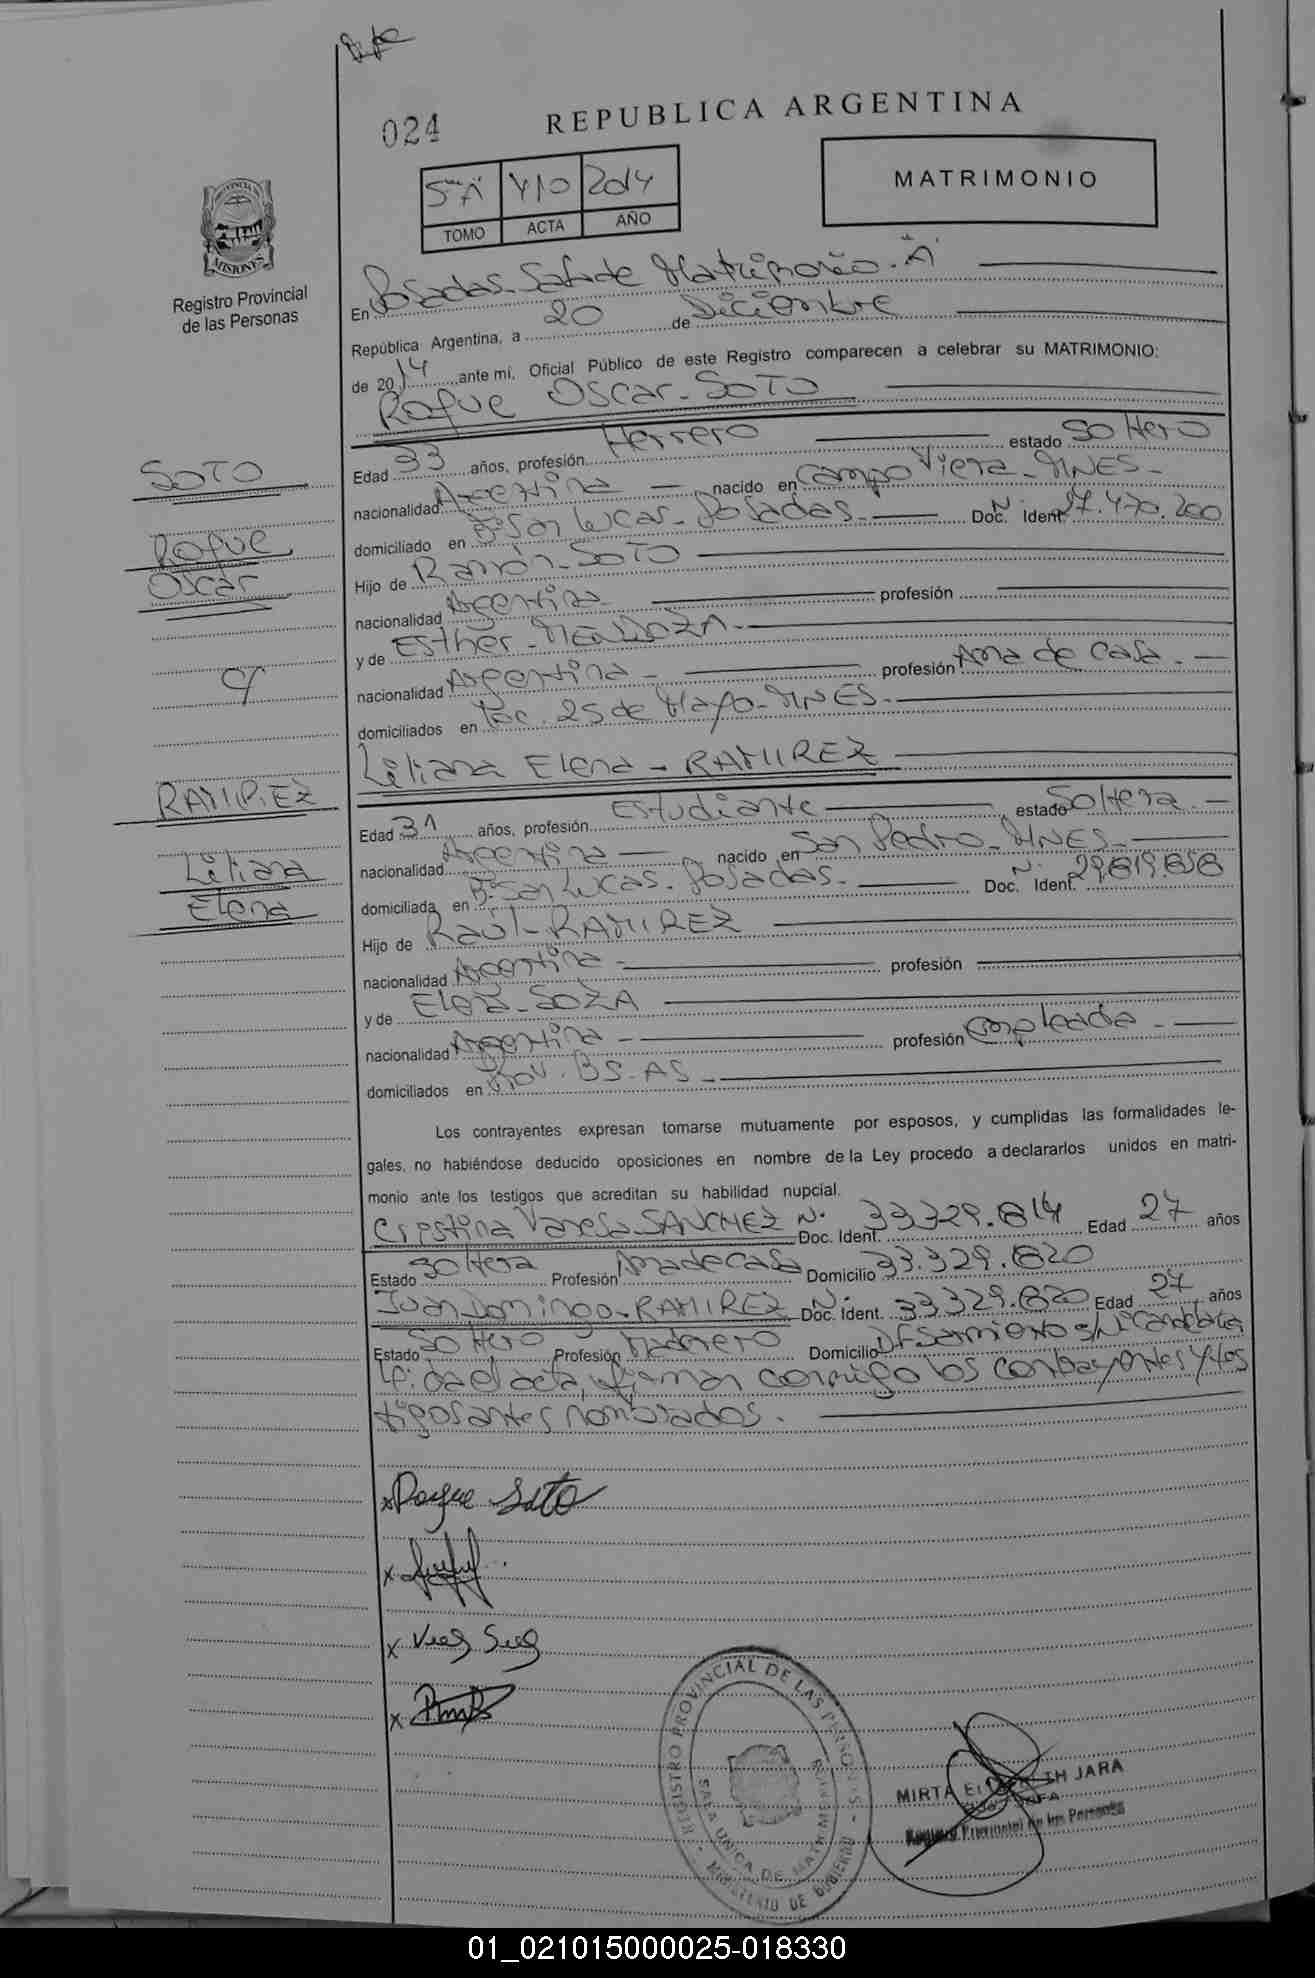 024
REPUBLICA ARGENTINA
5º"A" 410 2014
TOMO ACTA AÑO
MATRIMONIO
PROVINCIA DE
MISIONES
Registro Provincial
de las Personas
En Posadas-Sala de Matrimonio-"A"
República Argentina, a 20 de Diciembre
de 2014 ante mí, Oficial Público de este Registro comparecen a celebrar su MATRIMONIO:
Roque Oscar-SOTO
SOTO
Roque
Oscar
c/
RAMIREZ
Liliana
Elena
Edad 33 años, profesión Herrero estado Soltero
nacionalidad Argentina nacido en Campo Viera-MNES-
domiciliado en Bº San Lucas-Posadas- Doc. Ident. Nº 27.470.200
Hijo de Ramón-SOTO
nacionalidad Argentina- profesión
y de Esther-MENDOZA-
nacionalidad Argentina- profesión Ama de Casa.-
domiciliados en 25 de Mayo-MNES-
Liliana Elena-RAMIREZ
Edad 31 años, profesión Estudiante estado Soltera.-
nacionalidad Argentina nacido en San Pedro-MNES-
domiciliada en Bº San Lucas-Posadas- Doc. Ident. Nº 29.819.858
Hijo de Raúl-RAMIREZ
nacionalidad Argentina- profesión
y de Elena-SOZA
nacionalidad Argentina- profesión Empleada-
domiciliados en Prov. BS.AS-
Los contrayentes expresan tomarse mutuamente por esposos, y cumplidas las formalidades le-
gales, no habiéndose deducido oposiciones en nombre de la Ley procedo a declararlos unidos en matri-
monio ante los testigos que acreditan su habilidad nupcial.
Cristina Vanesa-SANCHEZ Doc. Ident. Nº 33.329.814 Edad 27 años
Estado Soltera Profesión Ama de Casa Domicilio 33.329.820
Juan Domingo-RAMIREZ Doc. Ident. Nº 33.329.820 Edad 27 años
Estado Soltero Profesión Maderero Domicilio DF Sarmiento s/N Candelaria
Leída el acta, firman conmigo los contrayentes y los
tigos antes nombrados.
x Roque Soto
x
x
x
REGISTRO PROVINCIAL DE LAS PERSONAS
SALA UNICA DE MATRIMONIOS
MINISTERIO DE GOBIERNO
MIRTA JARA
Registro Provincial de las Personas
01_021015000025-018330